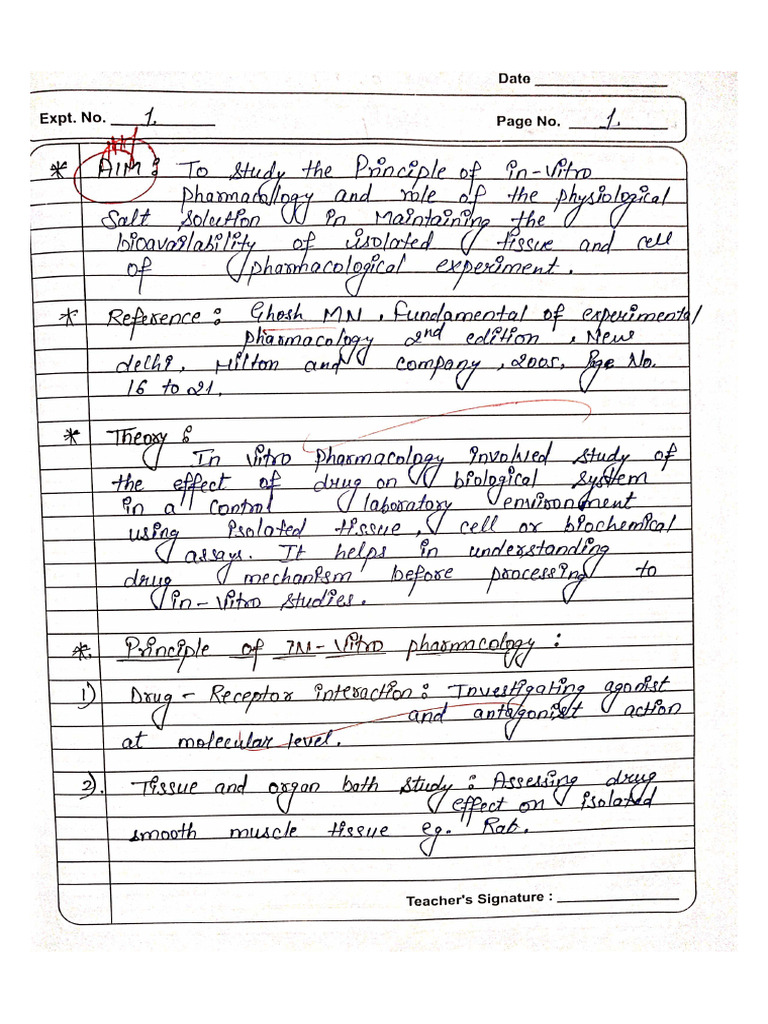 Date
Expt. No. 1.
Page No. 1.
* AIM : To study the Principle of in-vitro
pharmacology and role of the physiological
Salt solution in Maintaining the
bioavailability of isolated tissue and cell
of pharmacological experiment.
* Reference : Ghosh MN, Fundamental of experimental
pharmacology 2nd edition, New
delhi, Hilton and company, 2005, Page No.
16 to 21.
* Theory :
In vitro pharmacology involved study of
the effect of drug on biological system
in a control laboratory environment
using isolated tissue, cell or biochemical
assays. It helps in understanding
drug mechanism before processing to
in-vitro studies.
*. Principle of IN-Vitro pharmacology :
1) Drug - Receptor interaction : Investigating agonist
and antagonist action
at molecular level.
2). Tissue and organ both study : Assessing drug
effect on isolated
smooth muscle tissue eg. Rab.
Teacher's Signature :